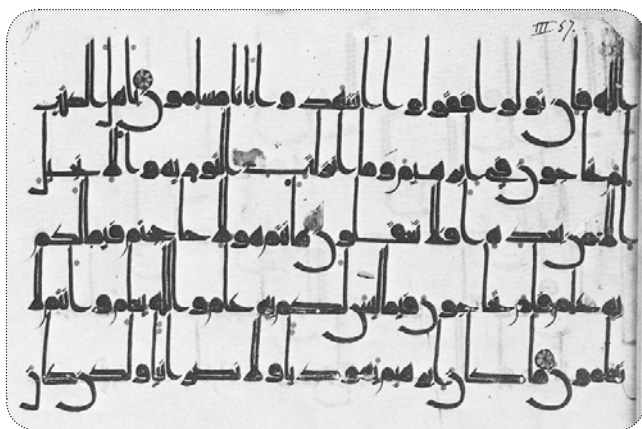 98
III 57.
الله فان تولوا فقولوا اشهدوا بانا مسلمون ياهل الكتب
لم تحاجون في ابرهيم وما انزلت التوريه والانجيل
الا من بعده افلا تعقلون هانتم هولا حاججتم فيما لكم
به علم فلم تحاجون فيما ليس لكم به علم والله يعلم وانتم لا
تعلمون ما كان ابرهيم يهوديا ولا نصرانيا ولكن كان